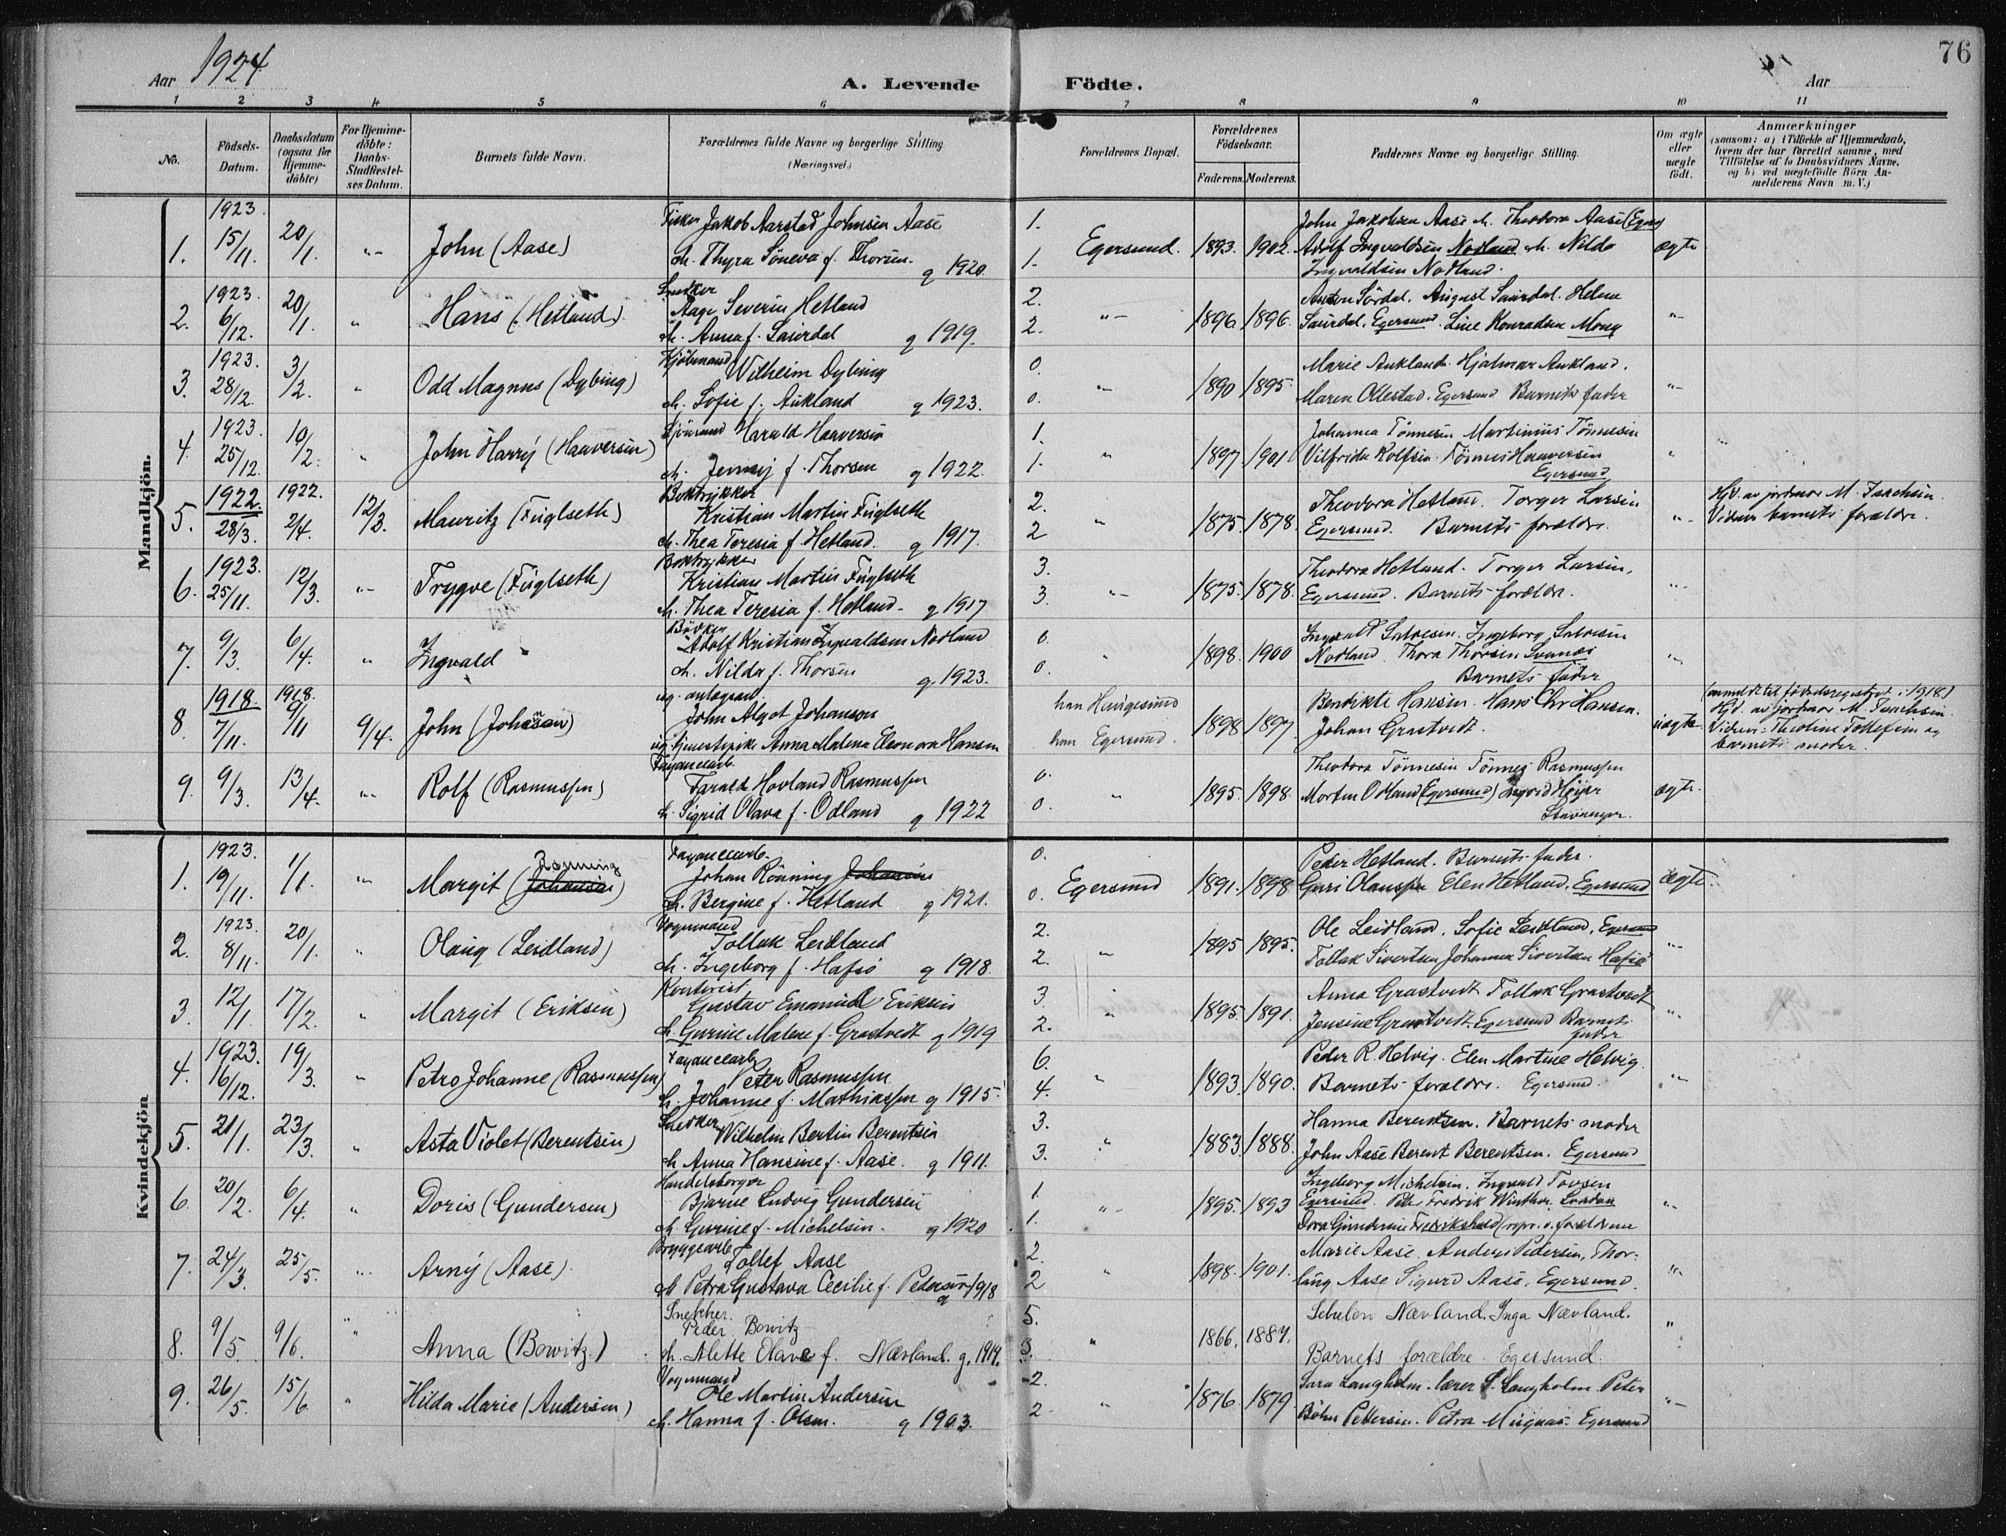 Aar 1924
A. Levende Födte.
Aar
76
1 2 3 4 5 6 7 8 9 10 11
No.
Födsels-Datum.
Daabsdatum (ogsaa for Hjemme-döbte)
For Hjemme-döbte: Daabs-Stadfæstel-ses Datum.
Barnets fulde Navn.
Forældrenes fulde Navne og borgerlige Stilling (Næringsvei.)
Forældrenes Bopæl.
Forældrenes Födselsaar.
Faderens. Moderens.
Faddernes Navne og borgerlige Stilling.
Om ægte eller uægte födt.
Anmærkninger
(saasom: a) i Tilfælde af Hjemmedaab,
hvem der har forrettet samme, med
Tilföielse af to Daabsvidners Navne,
og b) ved uægtefödte Börn An-
melderens Navn m. V.)
Mandkjön.
1. 1923. 15/11. 20/1. John (Aase)
Fisker Jakob Aarstad Johnsen Aase
h. Thyra Söneva f. Thorsen. g 1920.
1. 1. Egersund. 1893. 1902.
John Jakobsen Aase h. Theodora Aase (Egers)
Adolf Ingvaldsen Nodland h. Nilda
Ingvaldsen Nodland.
ægte
2. 1923. 6/12. 20/1. Hans (Hetland)
Snekker
Aage Severin Hetland
h. Anna f. Saurdal g 1919.
2. 2. 1896. 1896.
August Saurdal. Helene
Saurdal. Egersund. Line Konradsen Mong
3. 1923. 28/12. 3/2. Odd Magnus (Dybing)
Kjöbmand
Wilhelm Dybing
h. Sofie f. Aukland g 1923.
0. 0. 1890 1895.
Marie Aukland. Hjalmar Aukland.
Maren Ollestad. Egersund Barnets fader
4. 1923. 25/12. 10/2. John Harry (Haaversen)
Sjömand Harald Haaversen
h. Jenny f. Thorsen g 1922.
1. 1. 1897. 1901
Johanna Tönnesen Martinius Tönnesen
Vilfrida Rolfsen. Tönnes Haaversen
Egersund
5. 1922. 28/3. 1922. 2/4. 12/3. Mauritz (Fuglseth)
Boktrykker
Kristian Martin Fuglseth
h. Thea Teresia f. Hetland. g 1917.
2. 2 1875. 1878.
Theodora Hetland. Torger Larsen
Egersund. Barnets forældre.
Hjd. av jordmor M. Isachsen.
Vidner barnets forældre.
6. 1923. 25/11. 12/3. Trygve (Fuglseth)
Boktrykker
Kristian Martin Fuglseth
h. Thea Teresia f. Hetland. g 1917
3. 3. 1875. 1878.
Theodora Hetland. Torger Larsen,
Egersund. Barnets forældre.
7. 9/3. 6/4. Ingvald
Bödker
Adolf Kristian Ingvaldsen Nodland
h. Nilda f. Thorsen g 1923.
0. 0. 1898. 1900
Ingvald Salvesen. Ingeborg Salvesen
Nodland. Thora Thorsen
Barnets fader
8. 1918. 7/11. 1918. 9/11 9/4. John (Johanson)
John Algot Johanson
ug. tjenestepike Anna Malena Eleonora Hansen
han Haugesund
hun Egersund.
1898 1897
Bendikte Hansen. Hans Chr Hansen.
Johan Grastvedt.
uægte
(anmeldt til födselsregistret i 1918.)
Hjd. av jordmor M. Isachsen
Vidner: Theoline Tollefsen og
barnets moder.
9. 9/3. 13/4. Rolf (Rasmussen)
Fayancearb
Harald Hovland Rasmussen
h. Sigrid Olava f. Odland g 1922
0. 0. 1895. 1898.
Theodora Tönnesen Tönnes Rasmussen
Morten Odland (Egersund) Ingvid
Stavanger.
ægte.
Kvindekjön
1. 1923. 19/11. 1/1. Margit (Johansen) Rönning
Fayancearb.
Johan Rönning Johansen
h. Bergine f. Hetland g 1921.
0. 0. Egersund 1891. 1898
Peder Hetland. Barnets fader.
Guri Olaussen Elen Hetland. Egersund
ægte.
2. 1923. 8/11. 20/1. Olaug (Leidland)
Vognmand
Tollak Leidland
h. Ingeborg f. Hafsö g 1918.
2. 2. 1895 1895.
Ole Leidland. Sofie Leidland. Egersund
Tollak Sivertsen Johanna Sivertsen Hafsö
3. 12/1. 17/2. Margit (Eriksen)
Gustav Emanuel Eriksen
h. Gurine Malene f. Grastvedt g 1919
3. 2. 1895. 1891.
Anna Grastvedt Tollak Grastvedt
Jensine Grastvedt. Egersund Barnets
fader
4. 1923. 16/12. 19/3. Petro Johanne (Rasmussen)
Fayancearb
Peter Rasmussen
h. Johanne f. Mathiassen g 1915.
6. 4. 1893. 1890.
Peder R. Helvig. Elen Martine Helvig.
Barnets forældre. Egersund.
5. 21/1. 23/3. Asta Violet (Berentsen)
Snekker
Wilhelm Bertin Berentsen
h Anna Hansine f. Aase. g 1911.
3. 3. 1883. 1888.
Hanna Berentsen. Barnets moder
John Aase Berent Berentsen. Egersund
6. 20/2. 6/4. Doris (Gundersen)
Handelsborger
Bjarne Ludvig Gundersen
h Gurine f. Michelsen. g 1920
1. 1. 1895. 1893
Ingeborg Michelsen. Ingvald Tovsen
Egersund. Fredrik Winther. London
Dora Gundersen Fredrikshald (repr. v. forældrene
7. 24/3. 25/5. Arny (Aase)
Bryggearb
Tollef Aase
h Petra Gustava Cecilie f. Pedersen g 1918
2. 2 1898. 1901.
Marie Aase. Anders Pedersen, Thor-
laug Aase Sigurd Aase, Egersund.
8. 9/5. 9/6. Anna (Bowitz.)
Snekker.
Peder Bowitz
h. Alette Olava f. Nævland. g. 1914.
5. 3. 1866. 1887.
Nævland. Inga Nævland.
Barnets forældre. Egersund.
9. 26/5. 15/6. Hilda Marie (Andersen)
Vognmand
Ole Martin Andersen
h Hanna f. Olsen. g 1903.
2. 2. 1876. 1879
Sara Langholm. lærer S. Langholm. Peter
Böhn Pettersen. Petra Egersund